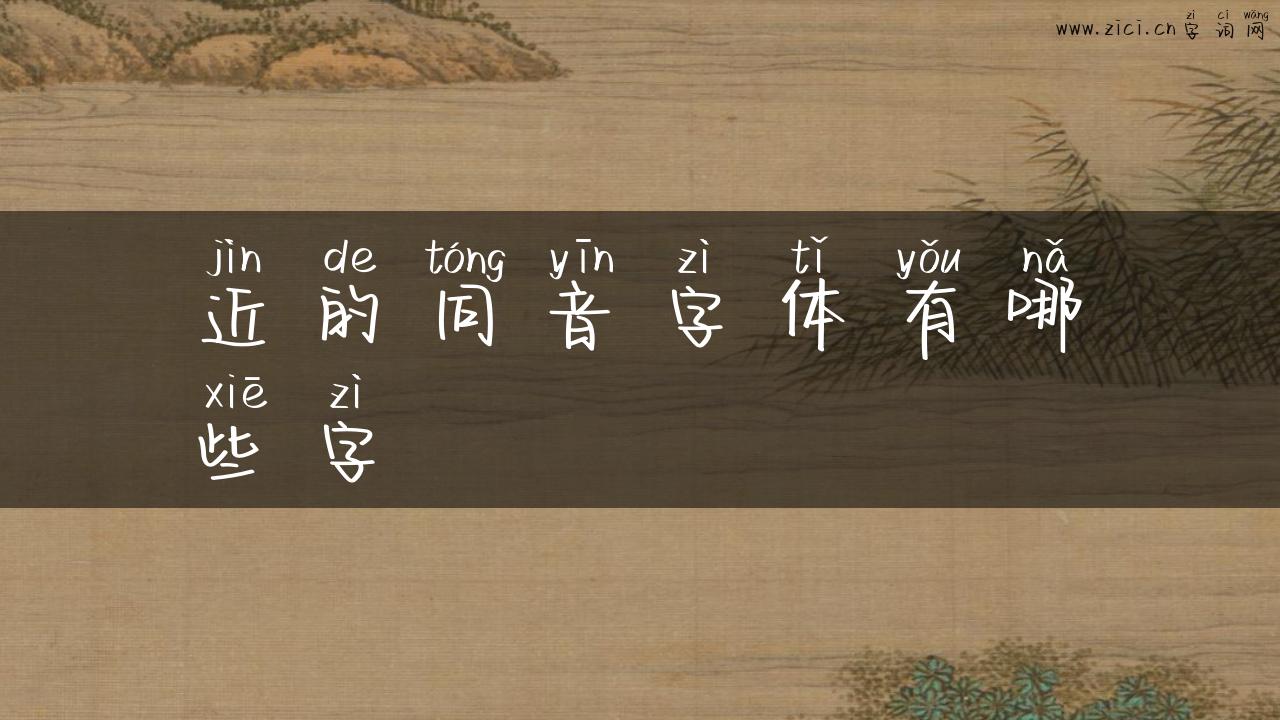 zì cí wǎng
www.zici.cn 字 词 网
jìn de tóng yīn zì tǐ yǒu nǎ
近 的 同 音 字 体 有 哪
xiē zì
些 字